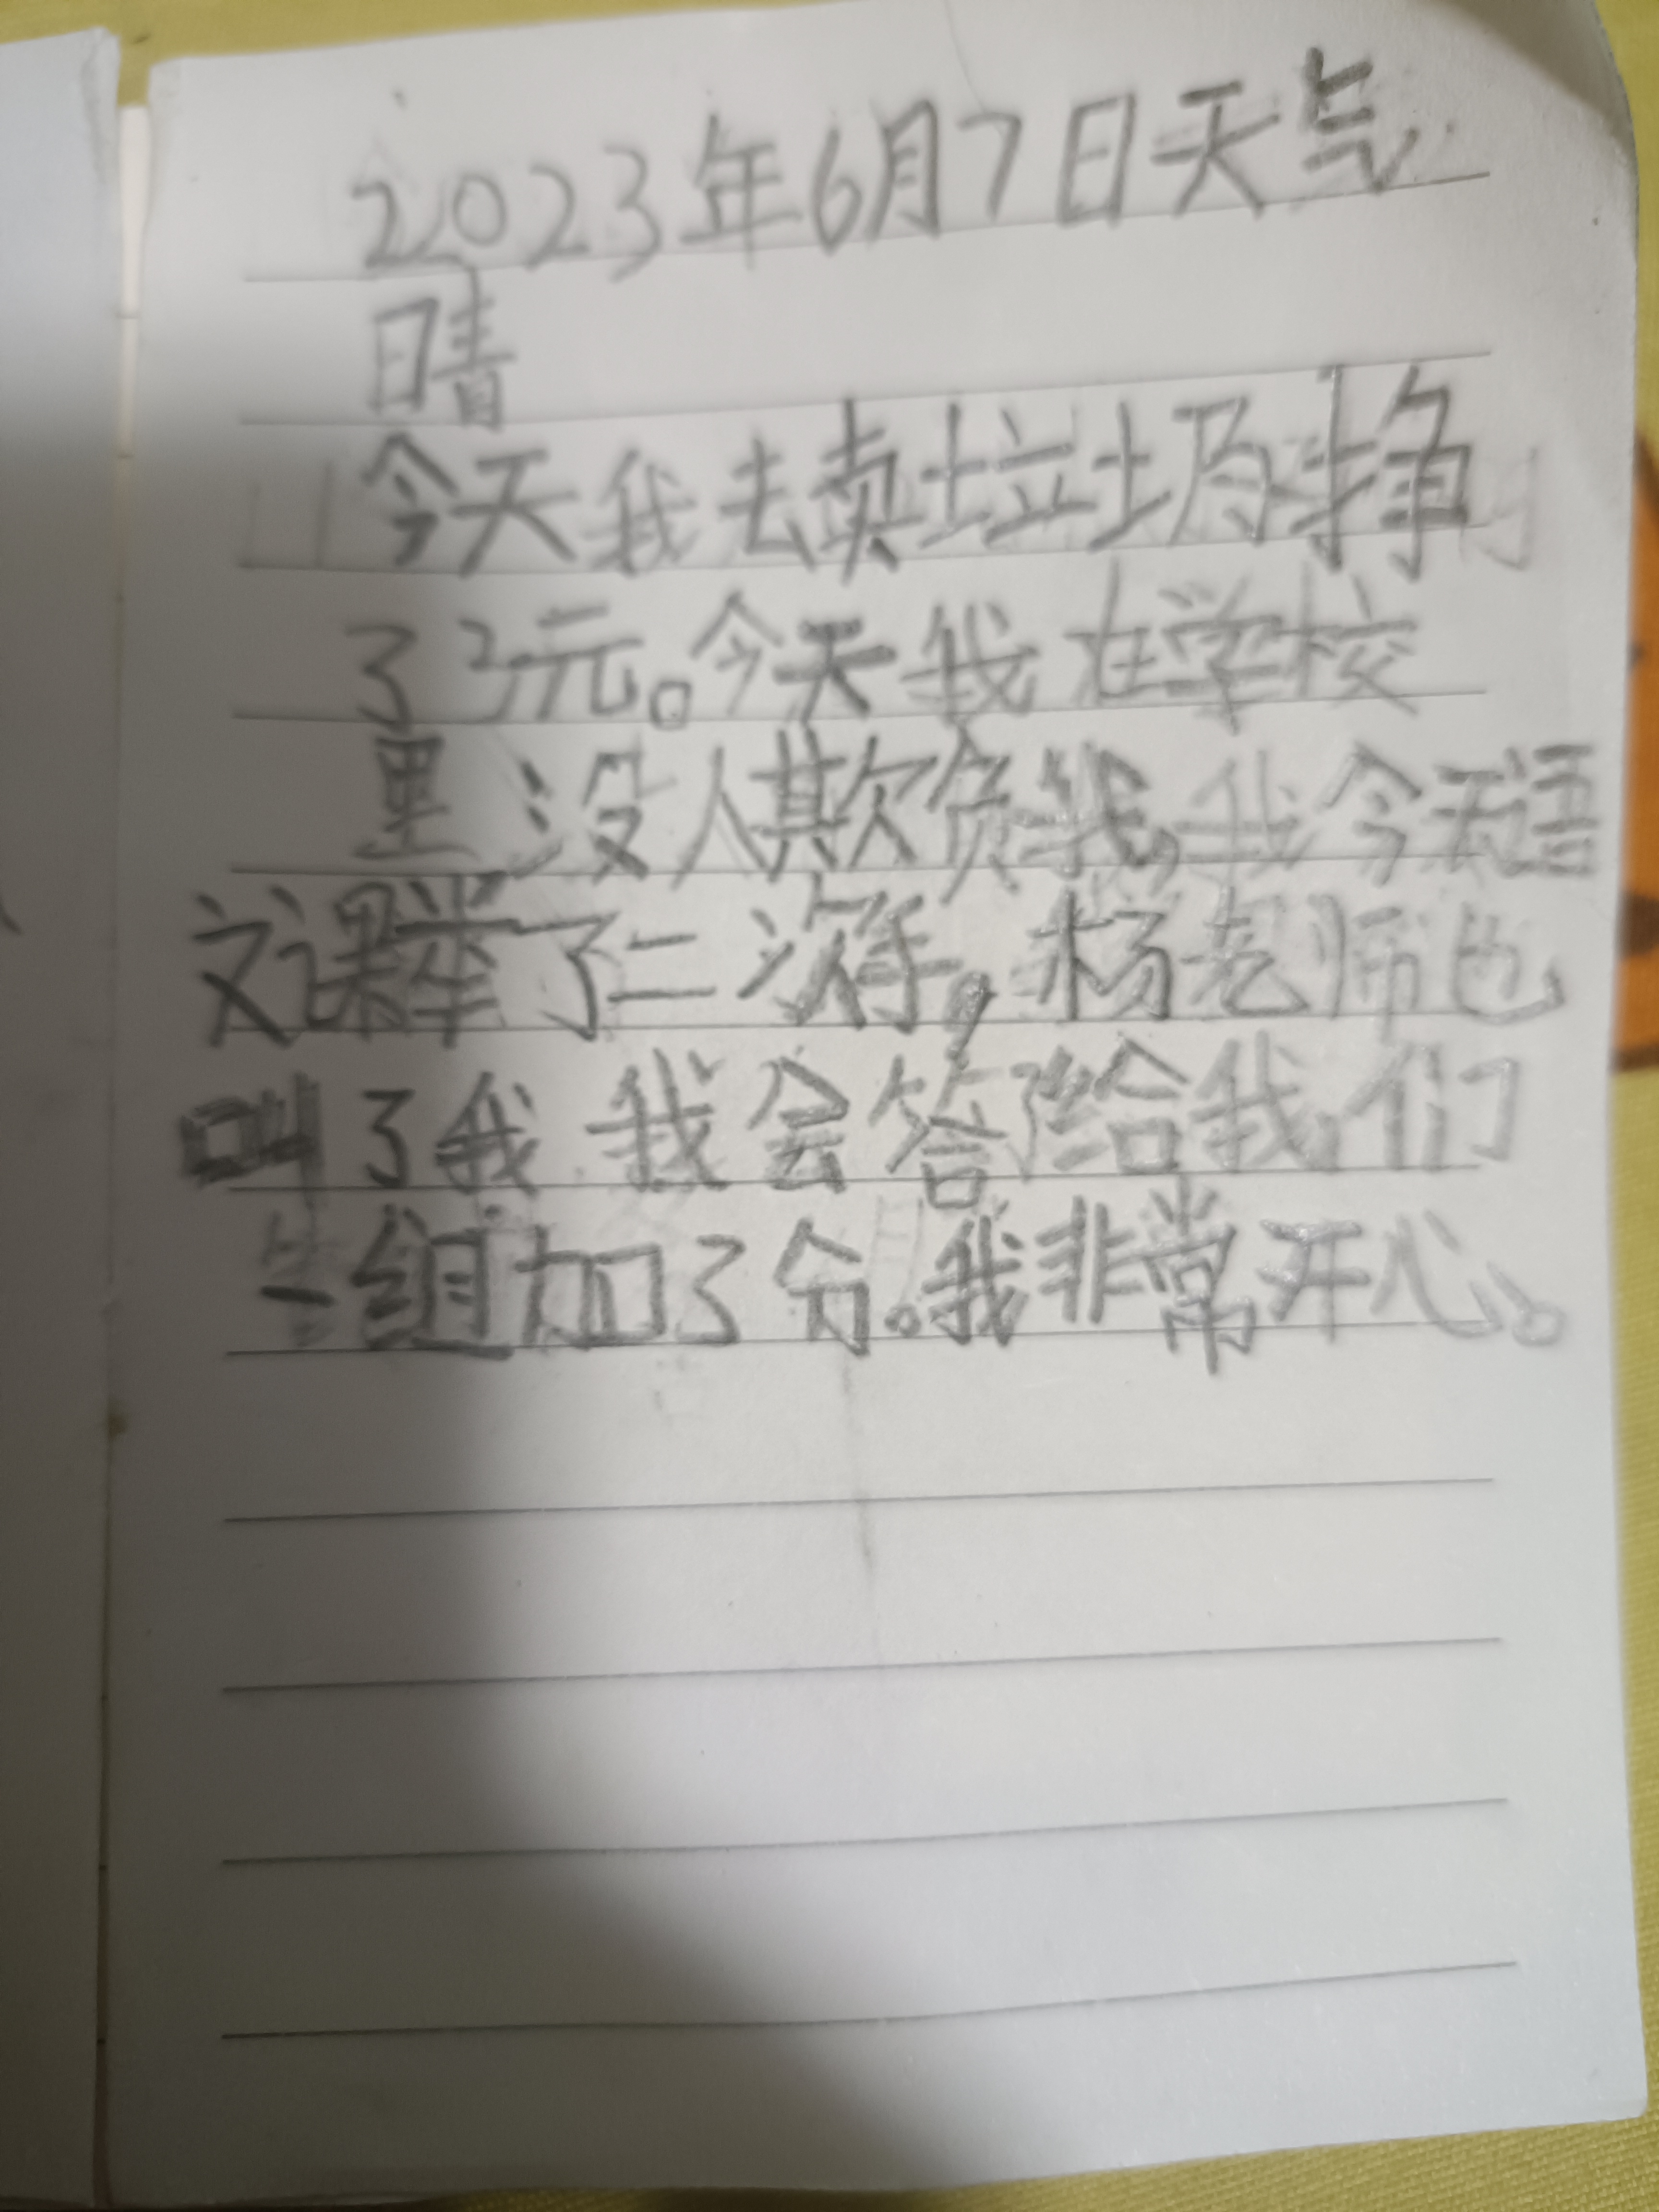 2023年6月7日天气
晴
今天我去卖垃圾挣
了2元。今天我在学校
里没人欺负我,我今天语
文课举了二次手,杨老师也
叫了我 我会答了给我们
一组加了分。我非常开心。